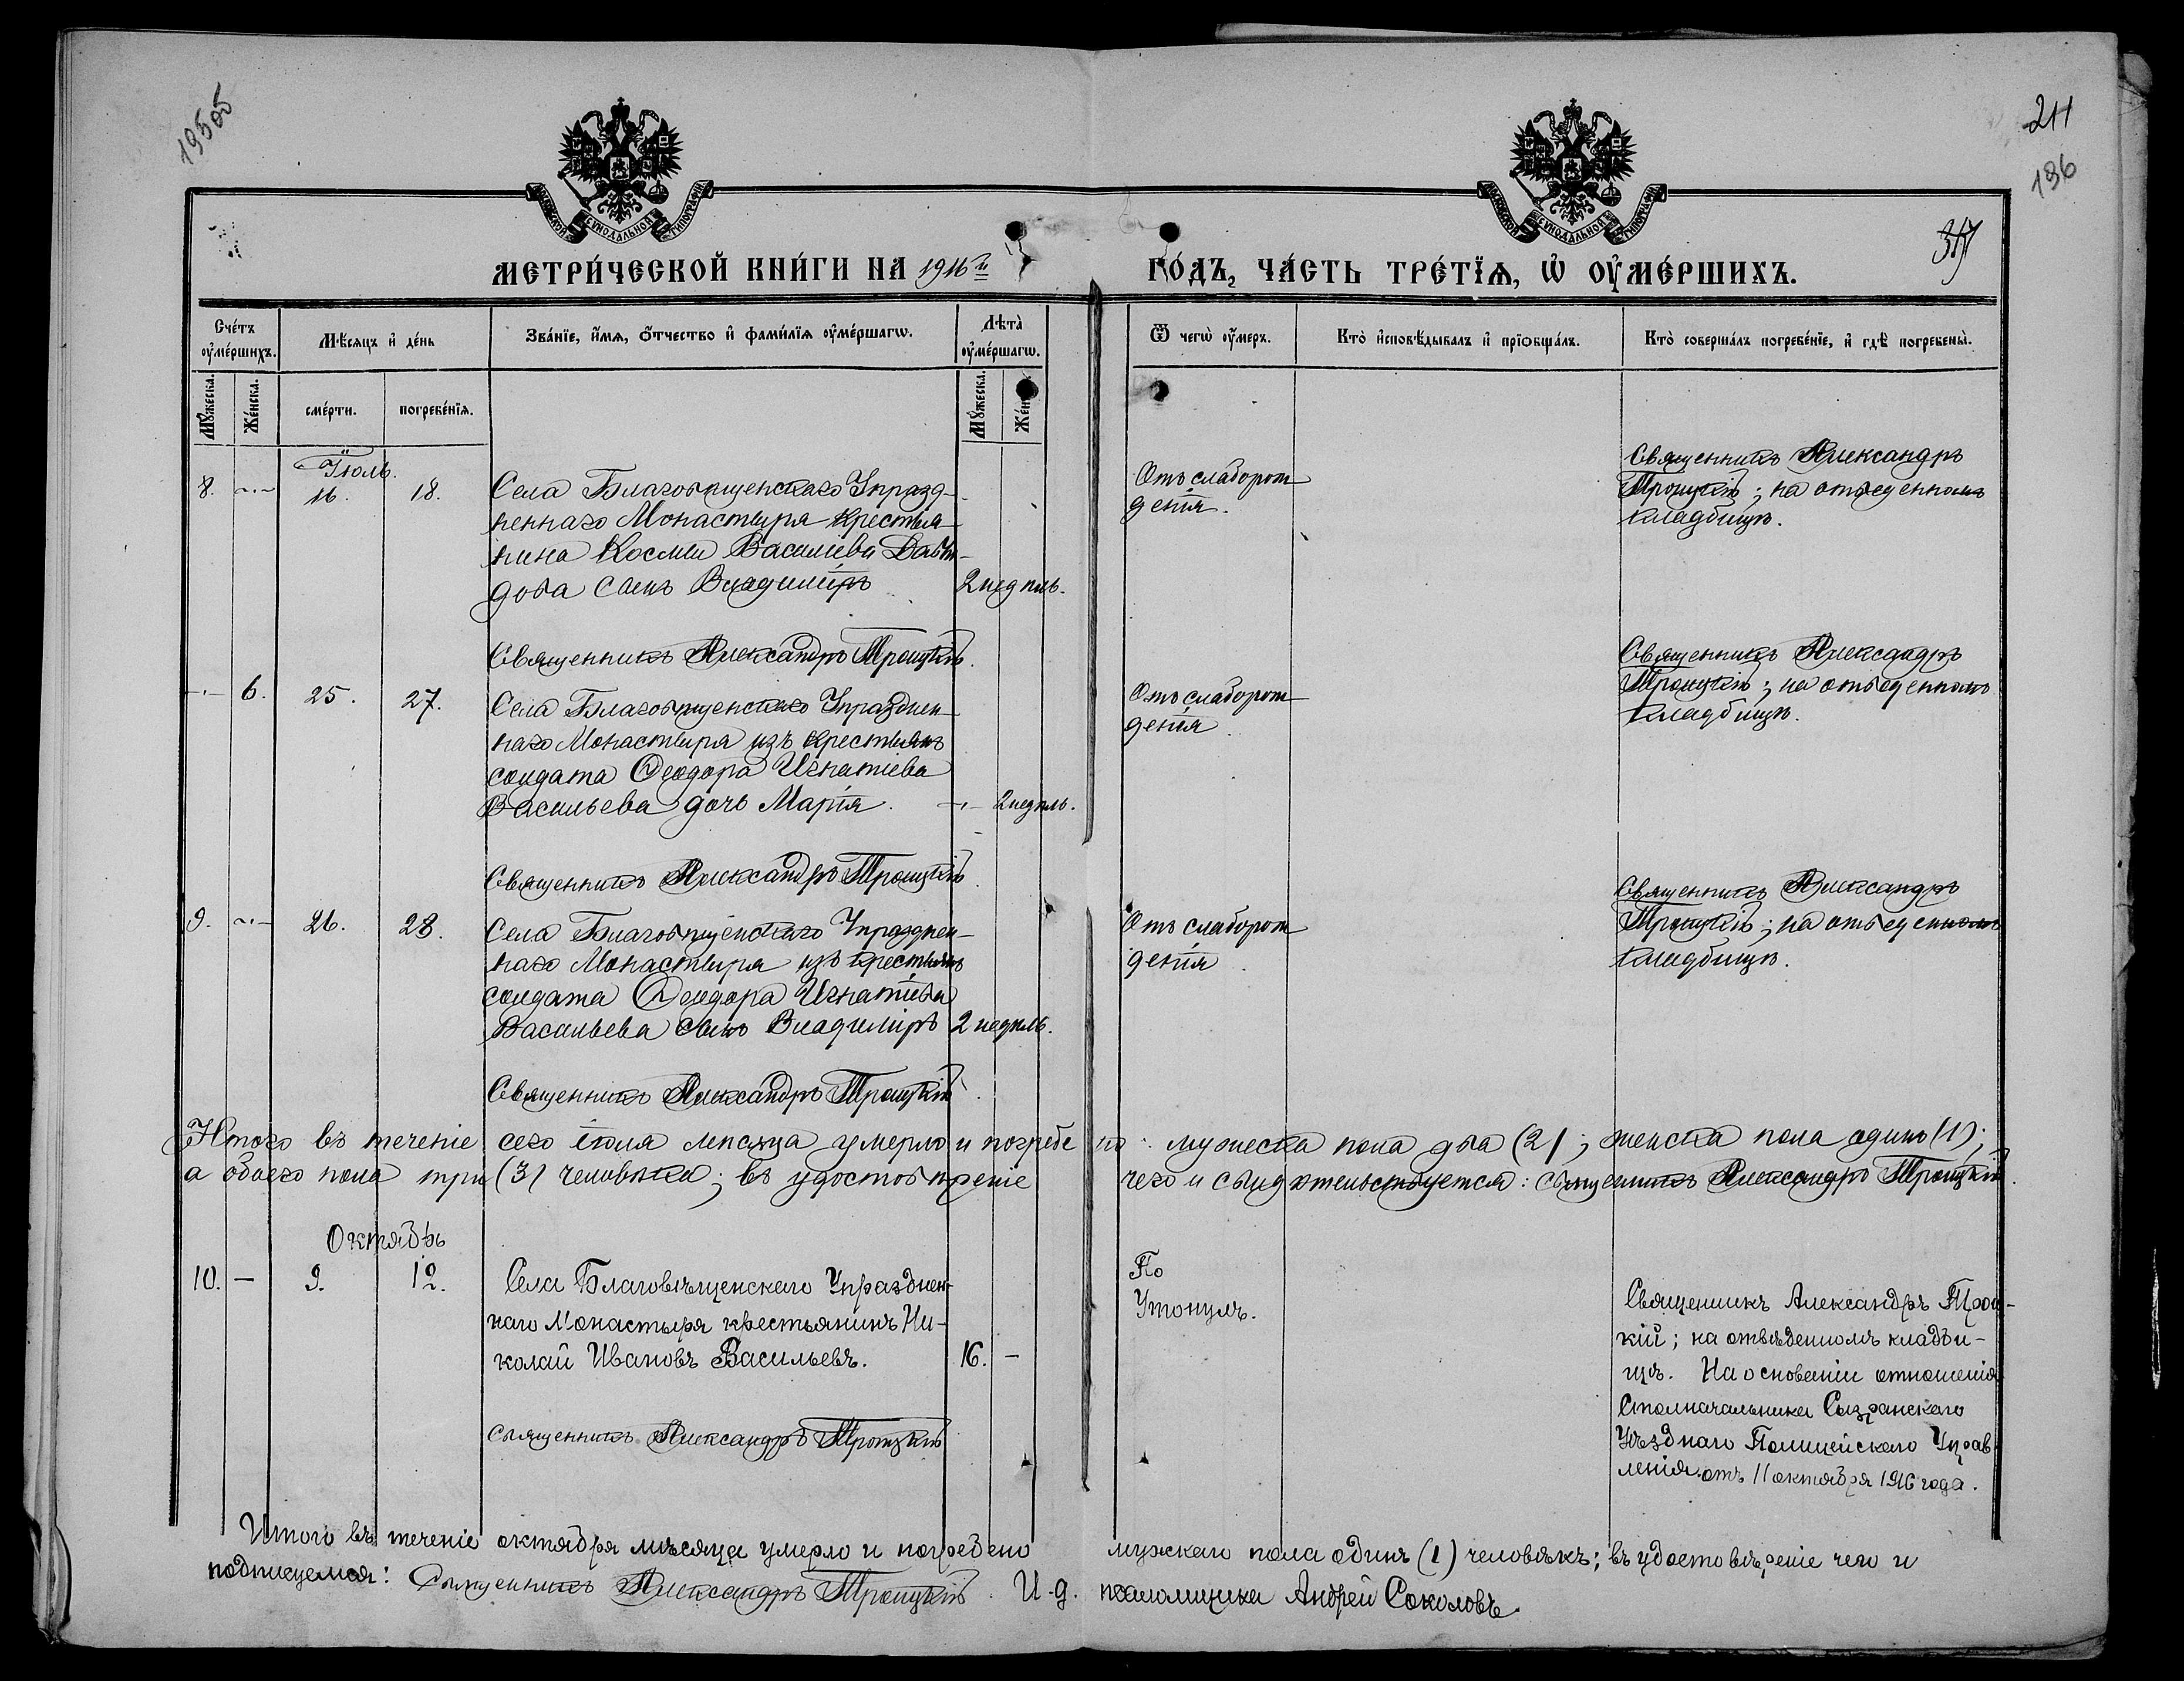 19505
211
196
МОСКОВСКОЙ СѴНОДАЛЬНОЙ ТИПОГРАФІИ
МОСКОВСКОЙ СѴНОДАЛЬНОЙ ТИПОГРАФІИ
МЕТРИ́ЧЕСКОЙ КНИ́ГИ НА 1916й ГО́ДЪ, ЧА́СТЬ ТРЕ́ТЇѦ, Ѡ҆ ОУ҆МЕ́РШИХЪ.
Сче́тъ оу҆ме́ршихъ.
Мѣ́сяцъ и҆ де́нь
Зва́нїе, и҆́мѧ, ѻ҆́тчество и҆ фами́лїѧ оу҆ме́ршагѡ.
Лѣта̀ оу҆ме́ршагѡ.
Ѿ чегѡ̀ оу҆́меръ.
Кто̀ и҆сповѣ́дывалъ и҆ прїѻбща́лъ.
Кто̀ соверша́лъ погребе́нїе, и҆ гдѣ̀ погребены̀.
Мꙋ́жеска. Же́нска. сме́рти. погребе́нїѧ. Мꙋ́жеска. Же́н
Іюль.
8. -"- 16. 18.
Села Благовѣщенскаго Упразд-
неннаго Монастыря крестья-
нина Космы Василіева Давы-
дова сынъ Владиміръ 2 недѣль.
Отъ слаборож
денія.
Священникъ Александръ
Троицкій; на отведенномъ
кладбищѣ.
Священникъ Александръ Троицкій.
-"- 6. 25. 27.
Села Благовѣщенскаго Упразднен-
наго Монастыря изъ крестьянъ
солдата Ѳеодора Игнатіева
Васильева дочь Марія. -"- 2 недѣль.
Отъ слаборож
денія.
Священникъ Александръ
Троицкій; на отведенномъ
кладбищѣ.
Священникъ Александръ Троицкій.
9. -"- 26. 28.
Села Благовѣщенскаго Упразднен-
наго Монастыря изъ крестьянъ
солдата Ѳеодора Игнатіева
Васильева сынъ Владиміръ 2 недѣль.
Отъ слаборож
денія.
Священникъ Александръ
Троицкій; на отведенномъ
кладбищѣ.
Священникъ Александръ Троицкій.
Итого въ теченіе сего іюля мѣсяца умерло и погребено: мужеска пола два (2); женска пола одинъ (1);
а обоего пола три (3) человѣка; въ удостовѣреніе чего и свидѣтельствуется: священникъ Александръ Троицкій.
Октябрь
10. - 9. 12.
Села Благовѣщенскаго Упразднен-
наго Монастыря крестьянинъ Ни-
колай Ивановъ Васильевъ. 16. -
По
Утонулъ.
Священникъ Александръ Трои-
кій; на отведенномъ кладби-
щѣ. На основаніи отношенія
Столначальника Сызранскаго
Уѣзднаго Полицейскаго Управ-
ленія отъ 11 октября 1916 года.
священникъ Александръ Троицкій
Итого въ теченіе октября мѣсяца умерло и погребено мужскаго пола одинъ (1) человѣкъ; въ удостовѣреніе чего и
подписуемся: Священникъ Александръ Троицкій. И. д. псаломщика Андрей Соколовъ.